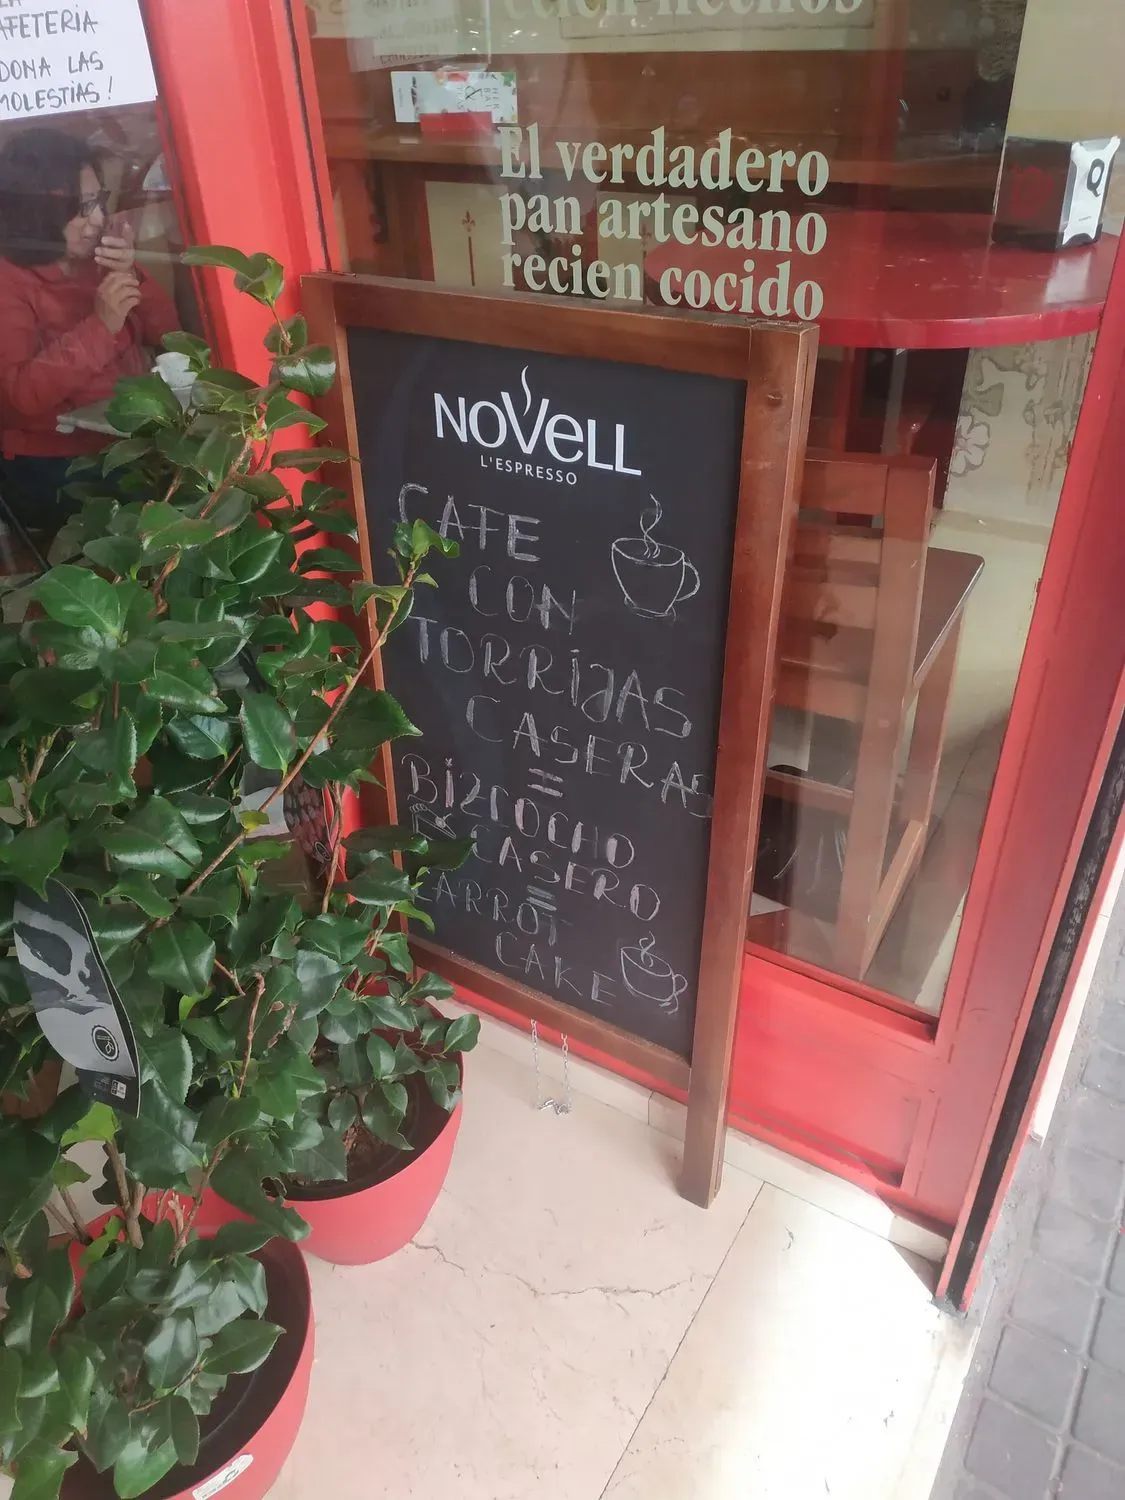 AFETERIA
DONA LAS
MOLESTIAS!
recien hechos
El verdadero
pan artesano
recien cocido
Q
NOVELL
L'ESPRESSO
CAFE
CON
TORRIJAS
CASERAS
=
BIZCOCHO
CASERO
=
CARROT
CAKE